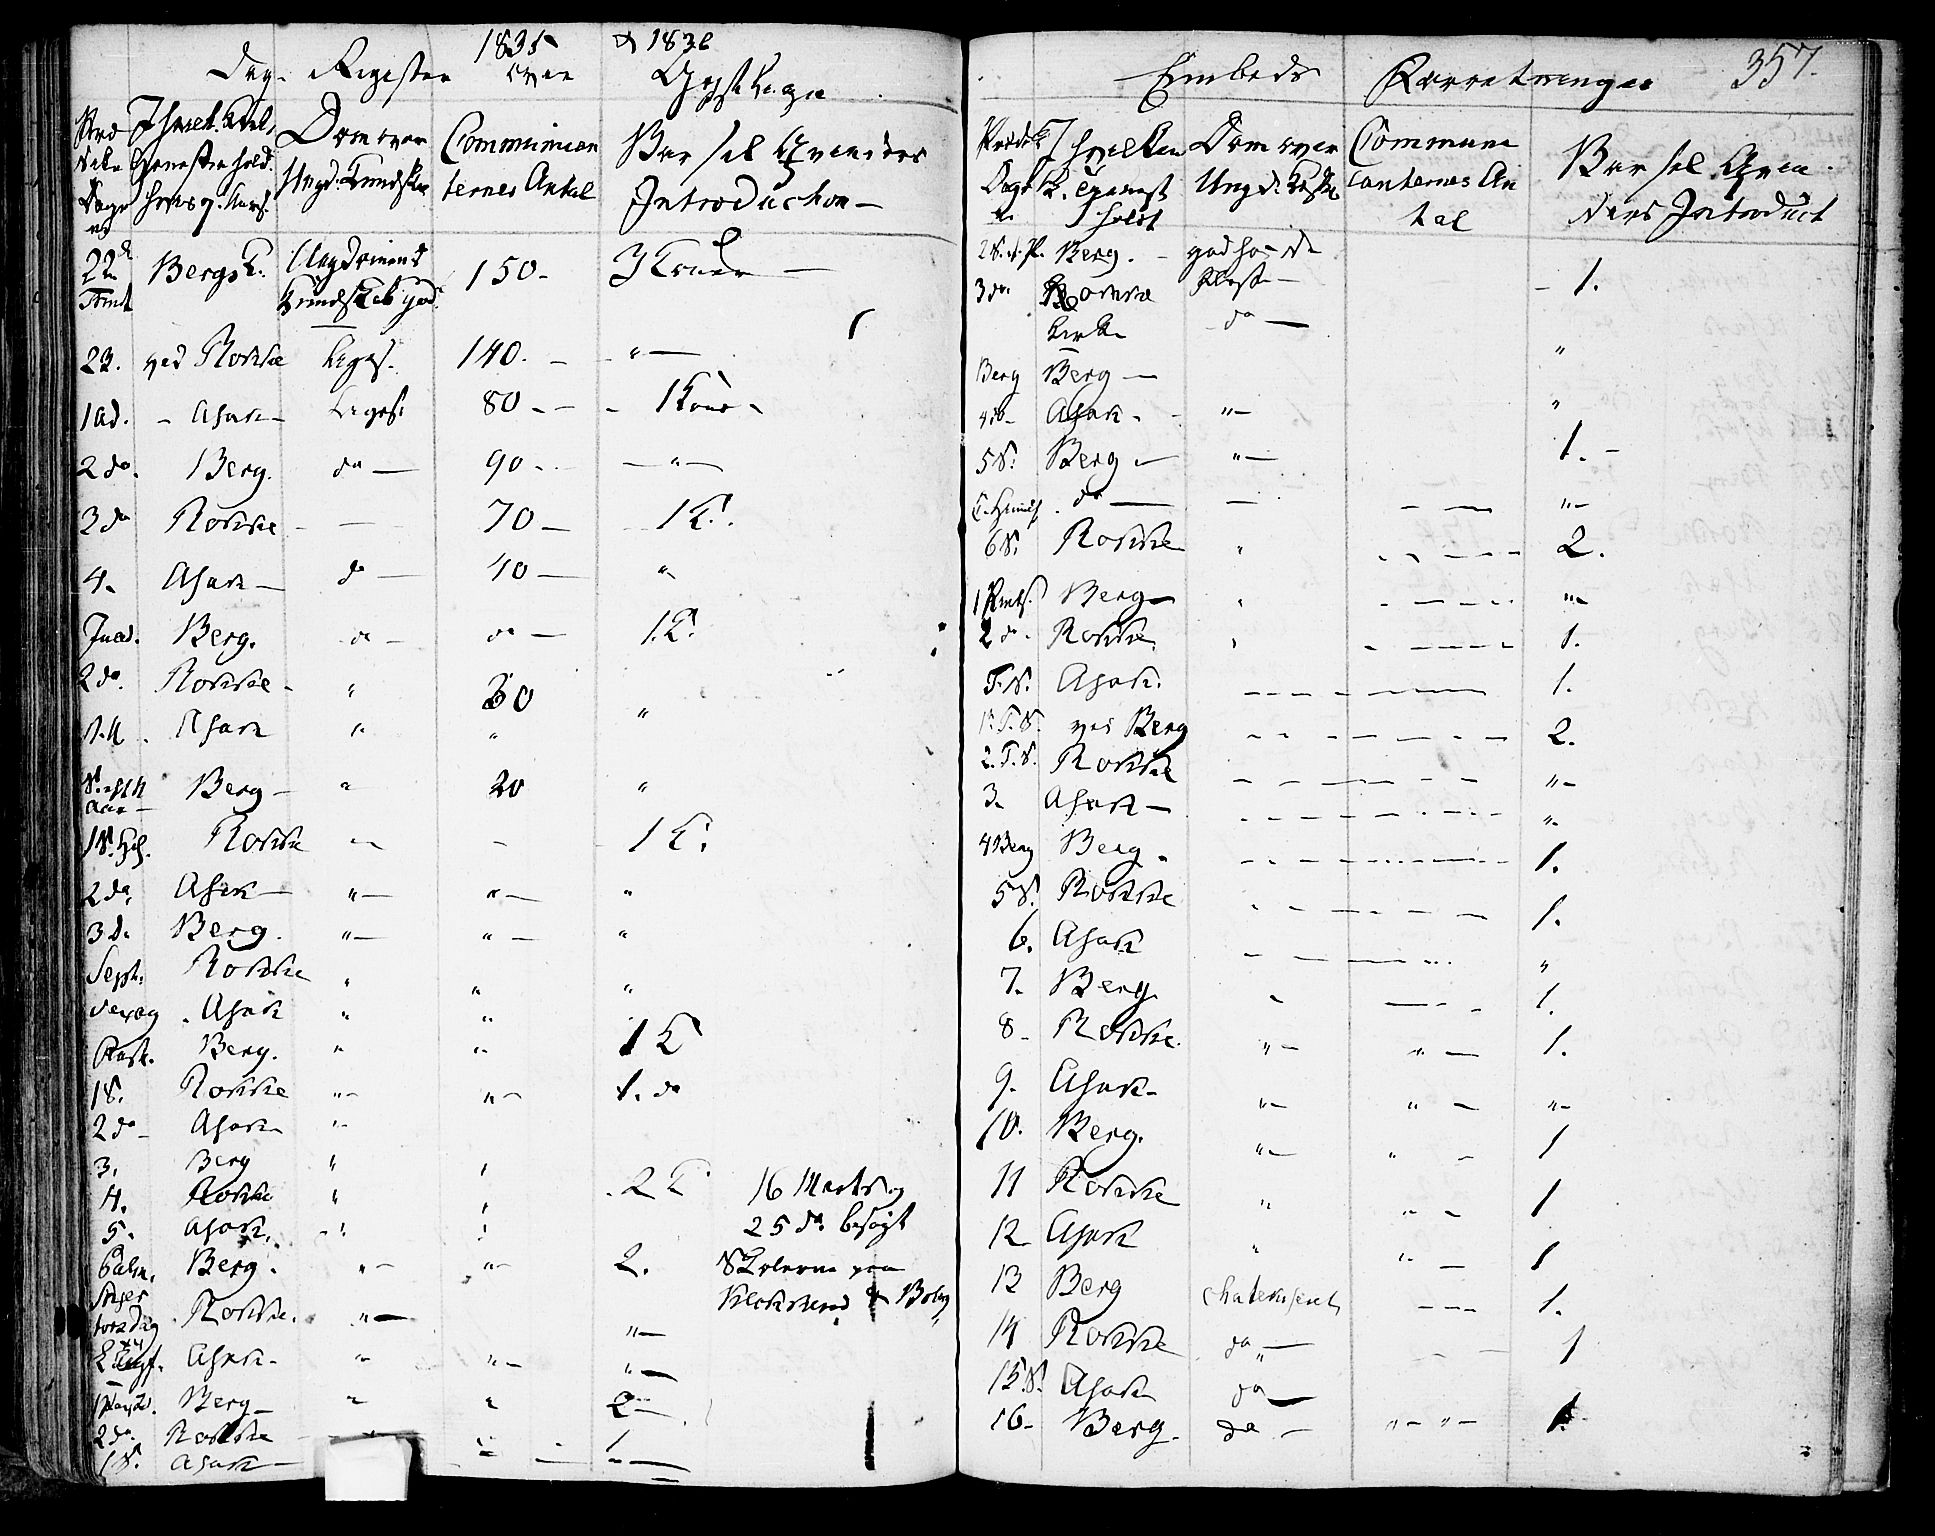 1835 & 1836
Dag- Register over
Præ Dom over Communican Barsel Qvinders
Dage Ungd. Kundskab ternes Antal Introduction -
22de Bergs K. Ungdommens 150 - 3 Koner -
Trinit Kundskab god.
23. ved Rokke Liges. 140. - " -
1 Ad. - Asak - Liges. 80 - - - 1 Kone -
2 do. Berg. do - 90 - - " -
3 do Rokke - - 70 - 1 K.
4. Asak - do - 40 - "
Juled. Berg. do - do - 1 K.
2 do. Rokke - " 30
N.A. Asak " " "
S. eft N Berg - " 20 "
Aar -
1 S. H. Rokke " - 1 K.
2 do. Asak - " - " - "
3 d. Berg. " - " - "
Sept. Rokke " " "
Sexag. Asak " " "
Fast. Berg. " " 1 K
1 S. Rokke " - " - 1. do
2 do - Asak - " -
3. Berg " "
4. Rokke " " 2 K 16 Marts og
5. Asak. " " 25 do besøgt
Palm. Berg. " - " - 2. Skolerne paa
Skjer Klokkerud & Boberg
torsdag Rokke. " - " -
Langf. Asak - " - " - " -
1 Paask. Berg - " " 2 -
2 do. Rokke - 1
1 S. Asak -

Embeds Forretninger 357.
Dom over Commune Barsel Qvin
Dage Ungd. canternes An ders Introduct
holdt tal
2 S. e. P. Berg. - god saa de - 1.
3 do. Rokke fleste -
Kirke - do -
Berg Berg - "
4 do - Asak - " - "
5 S. Berg - " - 1. -
C. Himlf. do - - - - " -
6 S. Rokke " 2.
1 Pints. Berg - " " -
2 do - Rokke " 1.
T. S. Asak. 1.
1. T. S. ved Berg 2.
2. T. S. Rokke " -
3. Asak - " -
4 Berg Berg - 1.
5 S. Rokke 1.
6. Asak "
7. Berg - 1.
8 - Rokke " - " - 1.
9. Asak - " - " - " -
10. Berg. " - " - 1
11 Rokke " " - 1
12 Asak " " - 1
13 Berg chatekiseret - - - 1.
14 Rokke do - 1
15 S. Asak do -
16 - Berg - do - " - " - 1.